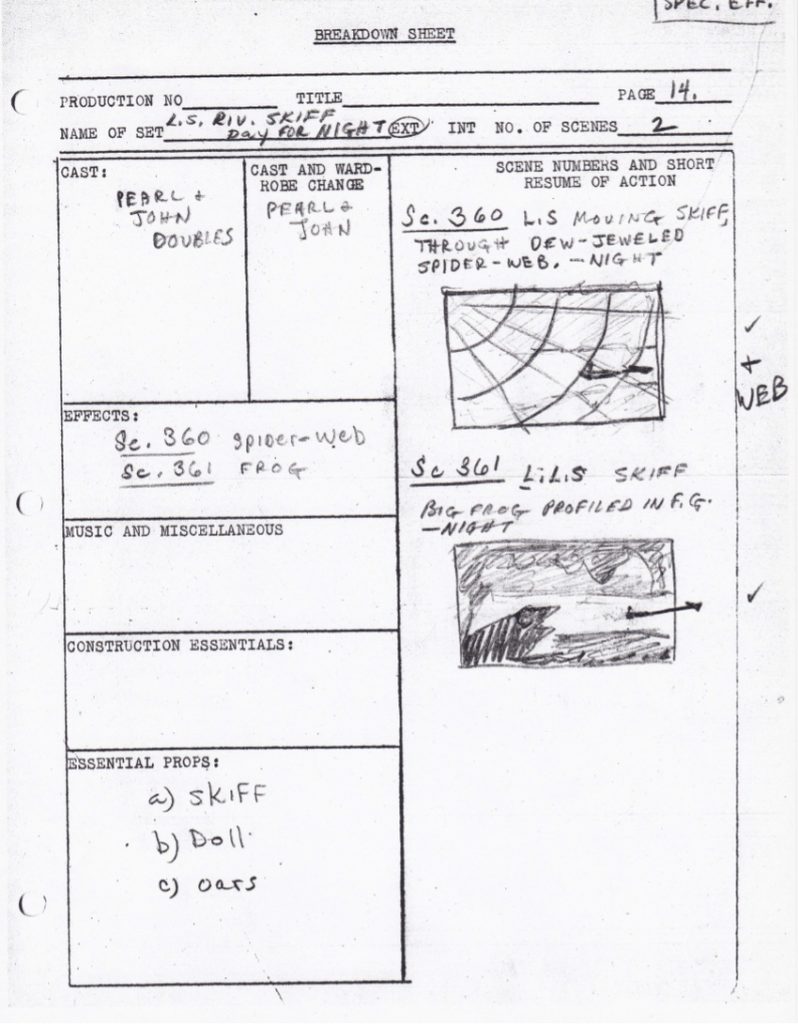 SPEC. EFF.
BREAKDOWN SHEET
PRODUCTION NO TITLE PAGE 14.
NAME OF SET L.S. RIV. SKIFF
Day FOR NIGHT EXT INT NO. OF SCENES 2
CAST:
PEARL &
JOHN
DOUBLES
CAST AND WARD-
ROBE CHANGE
PEARL &
JOHN
SCENE NUMBERS AND SHORT
RESUME OF ACTION
Sc. 360 L.S MOVING SKIFF,
THROUGH DEW-JEWELED
SPIDER-WEB. - NIGHT
✓
+
WEB
EFFECTS:
Sc. 360 Spider-Web
Sc. 361 FROG
Sc 361 L.L.S SKIFF
BIG FROG PROFILED IN F.G.
-NIGHT
✓
MUSIC AND MISCELLANEOUS
CONSTRUCTION ESSENTIALS:
ESSENTIAL PROPS:
a) SKIFF
b) Doll
c) oars